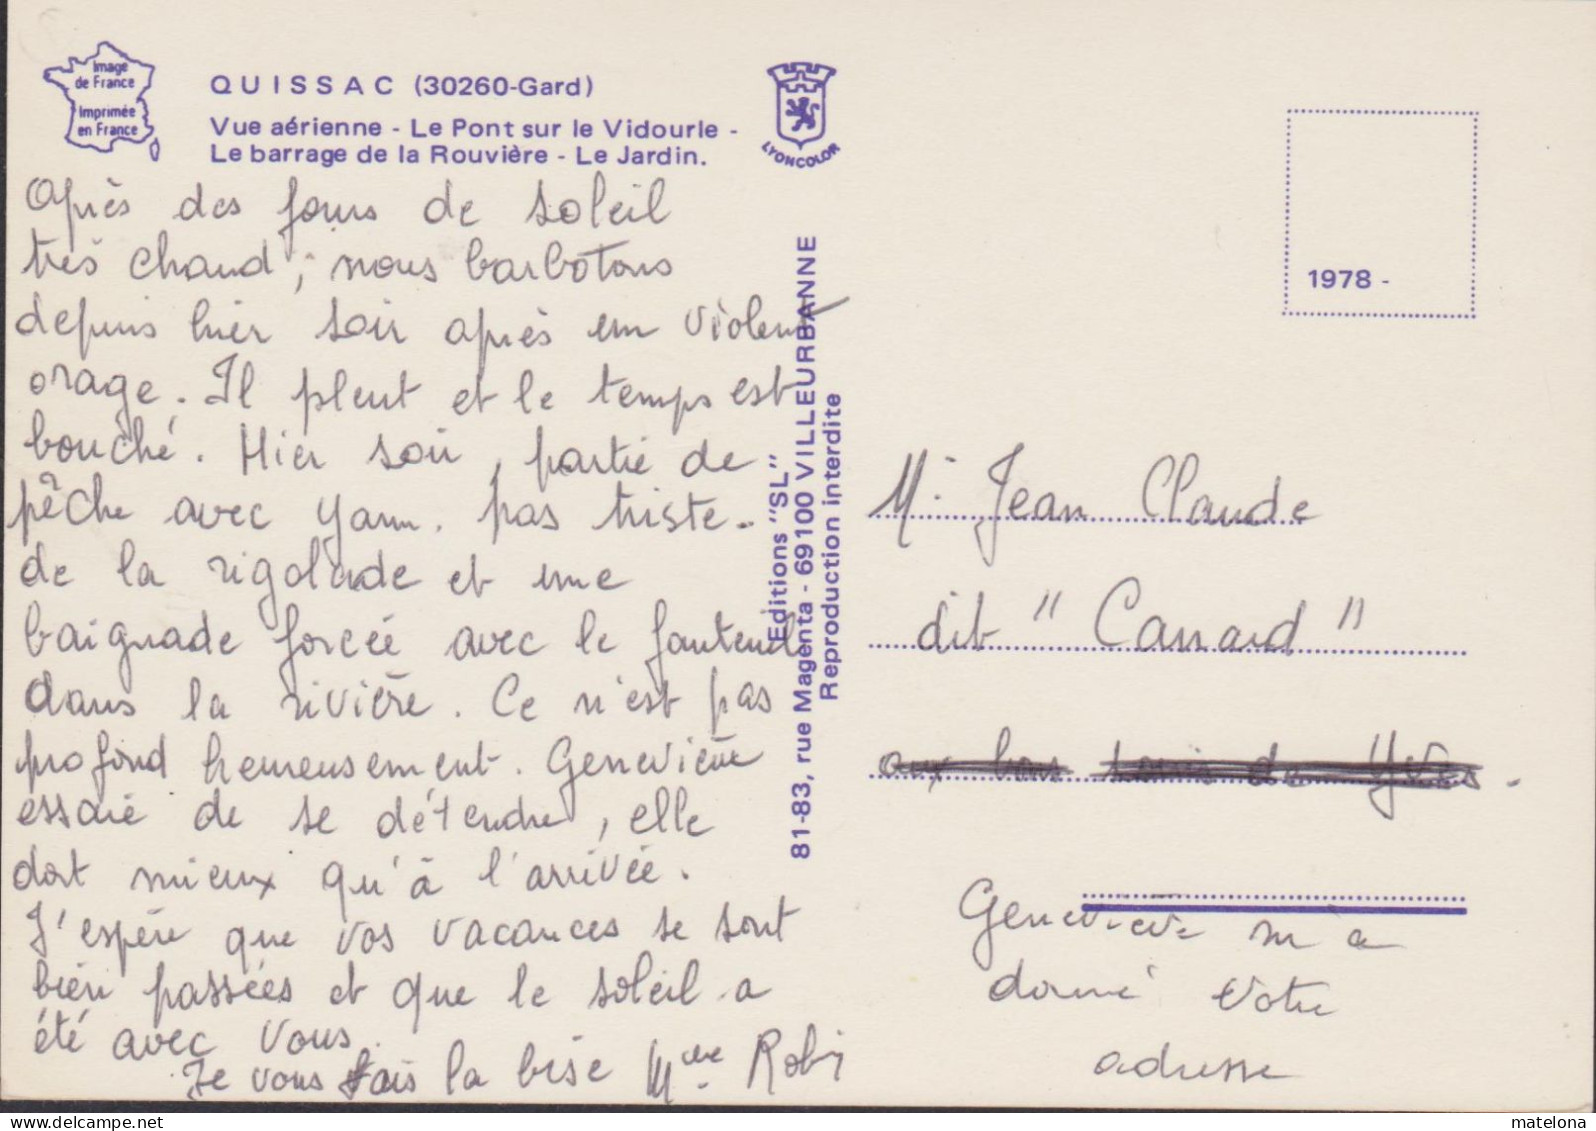 Image
de France
Imprimée
en France
QUISSAC (30260-Gard)
Vue aérienne - Le Pont sur le Vidourle -
Le barrage de la Rouvière - Le Jardin.
LYONCOLOR
1978 -
Après des jours de soleil
très chaud, nous barbotons
depuis hier soir après un violent
orage. Il pleut et le temps est
bouché. Hier soir, partie de
pêche avec Yann. pas triste.
de la rigolade et une
baignade forcée avec le fauteuil
dans la rivière. Ce n'est pas
profond heureusement. Geneviève
essaie de se détendre, elle
dort mieux qu'à l'arrivée.
J'espère que vos vacances se sont
bien passées et que le soleil a
été avec vous.
Je vous fais la bise Mme Robi
Editions "SL"
81-83, rue Magenta - 69100 VILLEURBANNE
Reproduction interdite
M. Jean Claude
dit "Canard"
aux bons soins de Yves.
Geneviève m'a
donné votre
adresse
matelona